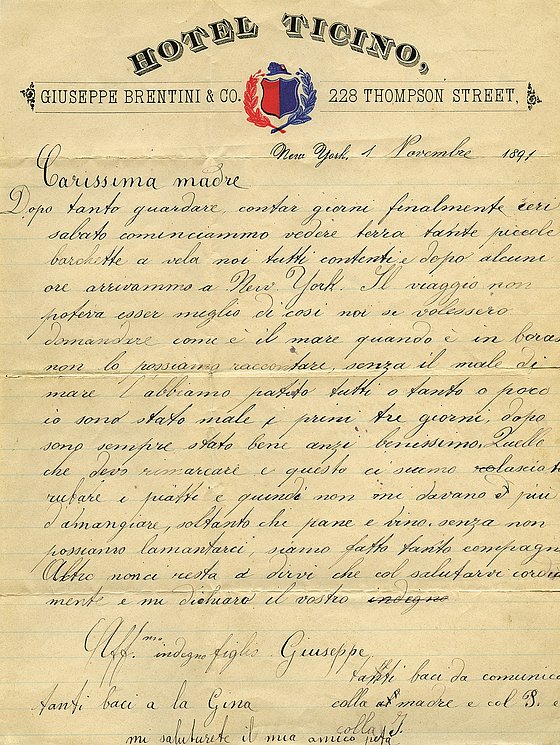 HOTEL TICINO,
GIUSEPPE BRENTINI & CO. 228 THOMPSON STREET,
New York, 1 Novembre 1891
Carissima madre
Dopo tanto guardare, contar giorni finalmente ieri
sabato cominciammo vedere terra tante piccole
barchette a vela noi tutti contenti e dopo alcuni
ore arrivammo a New York. Il viaggio non
poteva esser meglio di cosi noi se volessero
domandare come è il mare quando è in boras
non lo possiamo raccontare, senza il male di
mare l'abbiamo patito tutti o tanto o poco
io sono stato male i primi tre giorni, dopo
sono sempre stato bene anzi benissimo. Quello
che devo rimarcare e questo ci siamo lascia
rubare i piatti e quindi non mi davano più
d'amangiare, soltanto che pane e vino. senza non
possiamo lamantarci, siamo fatto tanto compagn
Altro nonci resta a dirvi che col salutarvi cordia
mente e mi dichiaro il vostro indegno
Aff.mo indegno figlio Giuseppe
tanti baci da comunica
tanti baci a la Gina colla madre e col P. e
colla J.
mi saluterete il mia amico